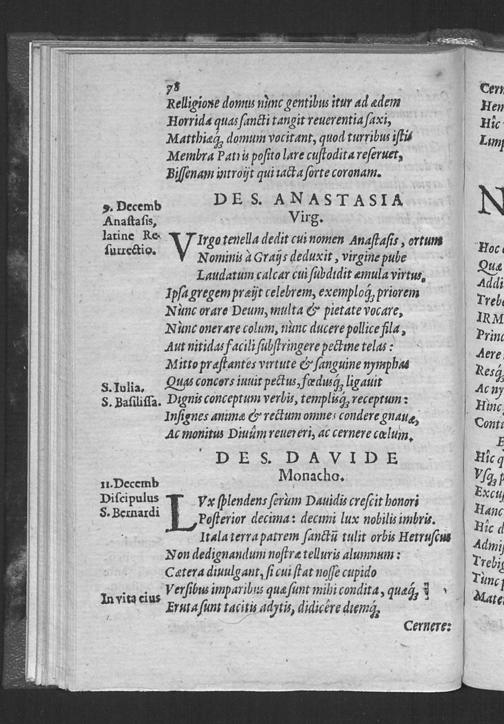 78
Relligione domus nùnc gentibus itur ad ædem
Horrida quas sancti tangit reuerentia saxi,
Matthiæq́; domum vocitant, quod turribus istis
Membra Patris posito lare custodita reseruet,
Bissenam introijt qui tacta sorte coronam.
DE S. ANASTASIA
Virg.
9. Decemb
Anastasis,
latine Re-
surrectio.
VIrgo tenella dedit cui nomen Anastasis, ortum
Nominis à Graijs deduxit, virgine pube
Laudatum calcar cui subdidit æmula virtus.
Ipsa gregem præijt celebrem, exemploq́; priorem
Nùnc orare Deum, multa & pietate vocare,
Nùnc onerare colum, nùnc ducere pollice fila,
Aut nitidas facili substringere pectine telas:
Mitto præstantes virtute & sanguine nymphas
S. Iulia.
S. Basilissa.
Quas concors iuuit pectus, fœdusq́; ligauit
Dignis conceptum verbis, templisq́; receptum:
Insignes animæ & rectum omnes condere gnauæ,
Ac monitus Diuûm reuereri, ac cernere cœlum.
DE S. DAVIDE
Monacho.
11. Decemb
Discipulus
S. Bernardi
LVx splendens serùm Dauidis crescit honori
Posterior decima: decimi lux nobilis imbris.
Itala terra patrem sanctũ tulit orbis Hetruscus
Non dedignandum nostræ telluris alumnum:
Cætera diuulgant, si cui stat nosse cupido
In vita eius
Versibus imparibus quæ sunt mihi condita, quæq́;
Eruta sunt tacitis adytis, didicêre diemq́;
Cernere:
Cern
Hem
Hîc
Limp
N
Hoc
Quæ
Addi
Trebe
IRM
Princ
Aere
Resq́;
Ac ny
Hinc
Contu
E
Hîc q
Vsq́; p
Excus
Hanc
Hîc d
Admi
Trebi
Tùnc
Mate